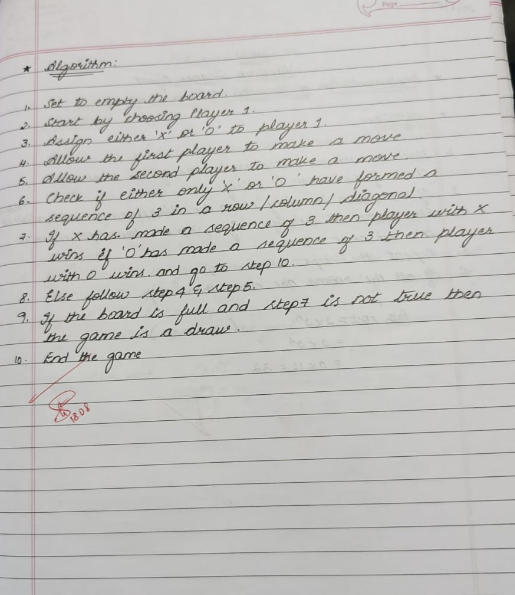 Page
* Algorithm:
1. Set to empty the board.
2. Start by choosing Player 1.
3. Assign either 'X' or 'O' to player 1.
4. Allow the first player to make a move
5. Allow the second player to make a move
6. Check if either only 'X' or 'O' have formed a
sequence of 3 in a row/column/diagonal
7. If X has made a sequence of 3 then player with X
wins if 'O' has made a sequence of 3 then player
with O wins. and go to step 10.
8. Else follow step 4 & step 5.
9. If the board is full and step 7 is not true then
the game is a draw.
10. End the game
18.08